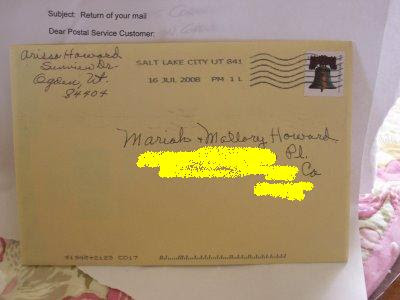 Subject: Return of your mail
Dear Postal Service Customer:
Arissa Howard
Sunview Dr
Ogden, Ut.
84404
SALT LAKE CITY UT 841
16 JUL 2008 PM 1 L
Mariah + Mallory Howard
Pl.
Co